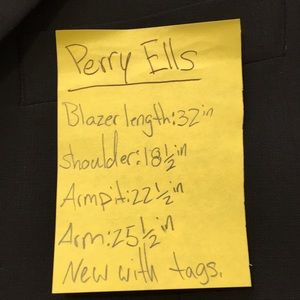 Perry Ells
Blazer length:32in
Shoulder:18½in
Armpit:22½in
Arm:25½in
New with tags.